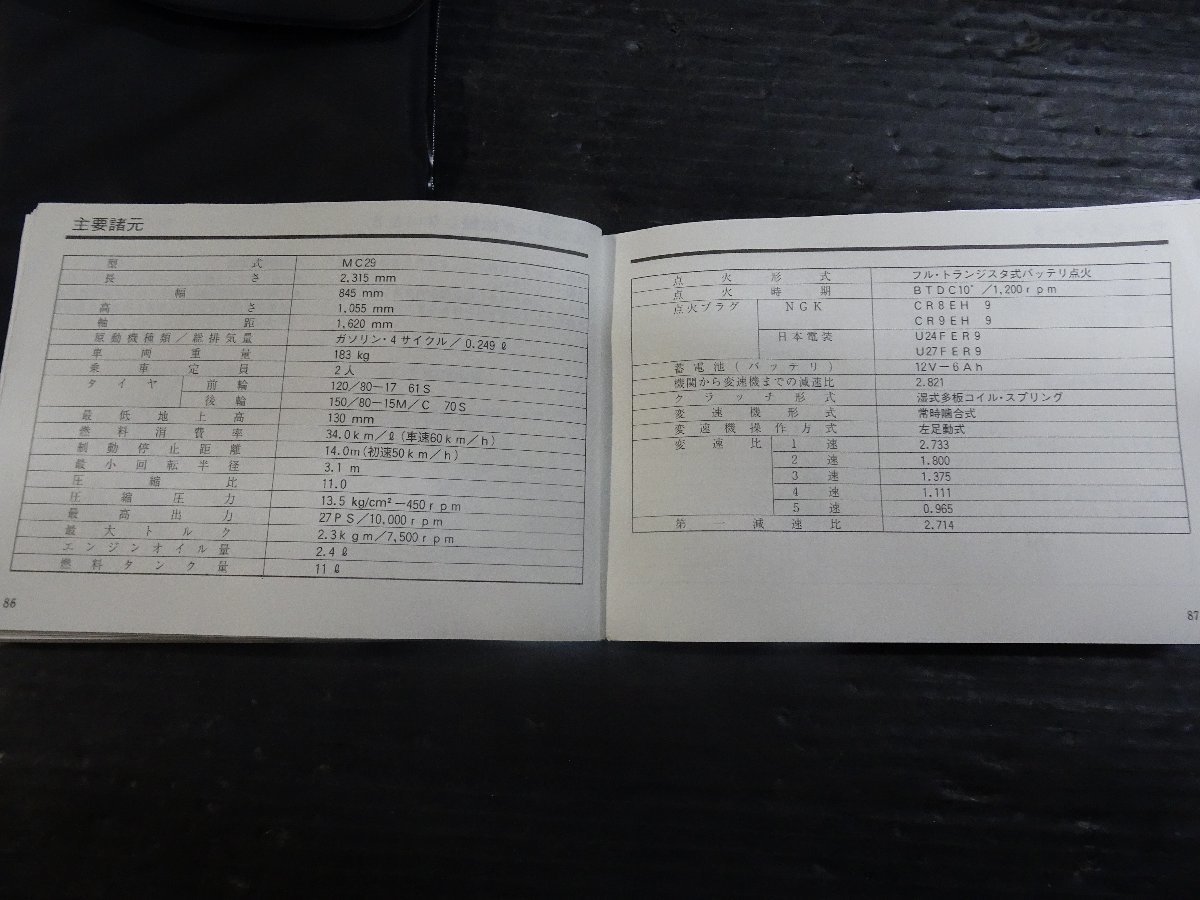 主要諸元
型式 MC29
長さ 2,315 mm
幅 845 mm
高さ 1,055 mm
軸距 1,620 mm
原動機種類／総排気量 ガソリン・4サイクル／0.249 ℓ
車両重量 183 kg
乗車定員 2人
タイヤ 前輪 120／80－17 61S
後輪 150／80－15M／C 70S
最低地上高 130 mm
燃料消費率 34.0km／ℓ（車速60km／h）
制動停止距離 14.0m（初速50km／h）
最小回転半径 3.1 m
圧縮比 11.0
圧縮圧力 13.5 kg/cm²－450rpm
最高出力 27PS／10,000rpm
最大トルク 2.3kgm／7,500rpm
エンジンオイル量 2.4 ℓ
燃料タンク量 11 ℓ
86
点火形式 フル・トランジスタ式バッテリ点火
点火時期 BTDC10°／1,200rpm
点火プラグ NGK CR8EH 9
CR9EH 9
日本電装 U24FER9
U27FER9
蓄電池（バッテリ） 12V－6Ah
機関から変速機までの減速比 2.821
クラッチ形式 湿式多板コイル・スプリング
変速機形式 常時噛合式
変速機操作方式 左足動式
変速比 1速 2.733
2速 1.800
3速 1.375
4速 1.111
5速 0.965
第一減速比 2.714
87